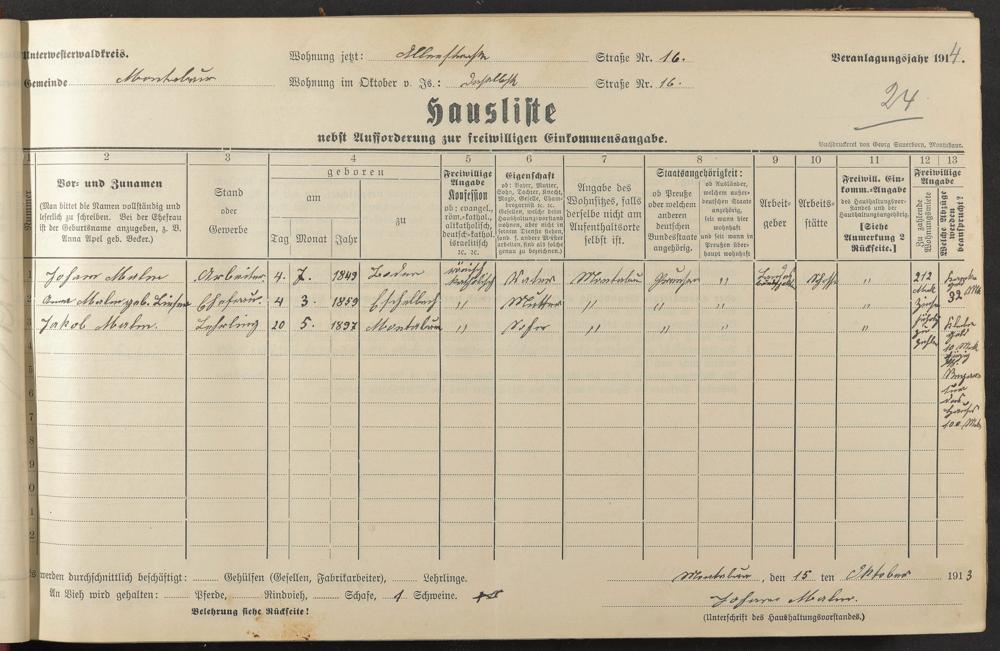 Unterwesterwaldkreis.
Wohnung jetzt: Straße Nr. 16.
Veranlagungsjahr 1914.
Gemeinde Montabaur
Wohnung im Oktober v. Js.: daselbst Straße Nr. 16.
24
Hausliste
nebst Aufforderung zur freiwilligen Einkommensangabe.
Buchdruckerei von Georg Sauerborn, Montabaur.
1 2 3 4 5 6 7 8 9 10 11 12 13
Nummer
Vor- und Zunamen
(Man bittet die Namen vollständig und
leserlich zu schreiben. Bei der Ehefrau
ist der Geburtsname anzugeben, z. B.
Anna Apel geb. Becker.)
Stand
oder
Gewerbe
geboren
am
Tag Monat Jahr
zu
Freiwillige
Angabe
Konfession
ob: evangel.,
röm.-kathol.,
altkatholisch,
deutsch-kathol.,
israelitisch
ic. ic.
Eigenschaft
ob: Vater, Mutter,
Sohn, Tochter, Knecht,
Magd, Geselle,
Angabe des
Wohnsitzes, falls
derselbe nicht am
Aufenthaltsorte
selbst ist.
Staatsangehörigkeit:
ob Preuße
oder welchem
anderen
deutschen
Bundesstaate
angehörig.
ob Ausländer,
welchem außer-
deutschen Staate
angehörig,
seit wann hier
und seit wann
in Preußen über-
haupt wohnhaft
Arbeit-
geber
Arbeits-
stätte
Freiwill. Ein-
komm.-Angabe
des Haushaltungsvor-
standes und der
Haushaltungsangehörig.
[Siehe
Anmerkung 2
Rückseite.]
Freiwillige
Angabe
Zu zahlende
Wohnungsmiete
Welche Abzüge
werden
beansprucht?
1 Johann Malm Arbeiter 4. 7. 1849 Boden katholisch Vater Montabaur Preußen " 212
2 Anna Malm geb. Ehefrau. 4 3. 1859 Eschelbach " Mutter " " " "
3 Jakob Malm. Lehrling 20 5. 1897 Montabaur " Sohn " " " "
Mark
jährlich
zu
zahlen
32 Mk
10 Mark
des
Hauses
100 Mark
4
5
6
7
8
9
werden durchschnittlich beschäftigt: Gehülfen (Gesellen, Fabrikarbeiter), Lehrlinge.
Montabaur, den 15 ten Oktober 1913
An Vieh wird gehalten: Pferde, Rindvieh, Schafe, 1 Schweine.
Johann Malm.
Belehrung siehe Rückseite!
(Unterschrift des Haushaltungsvorstandes.)